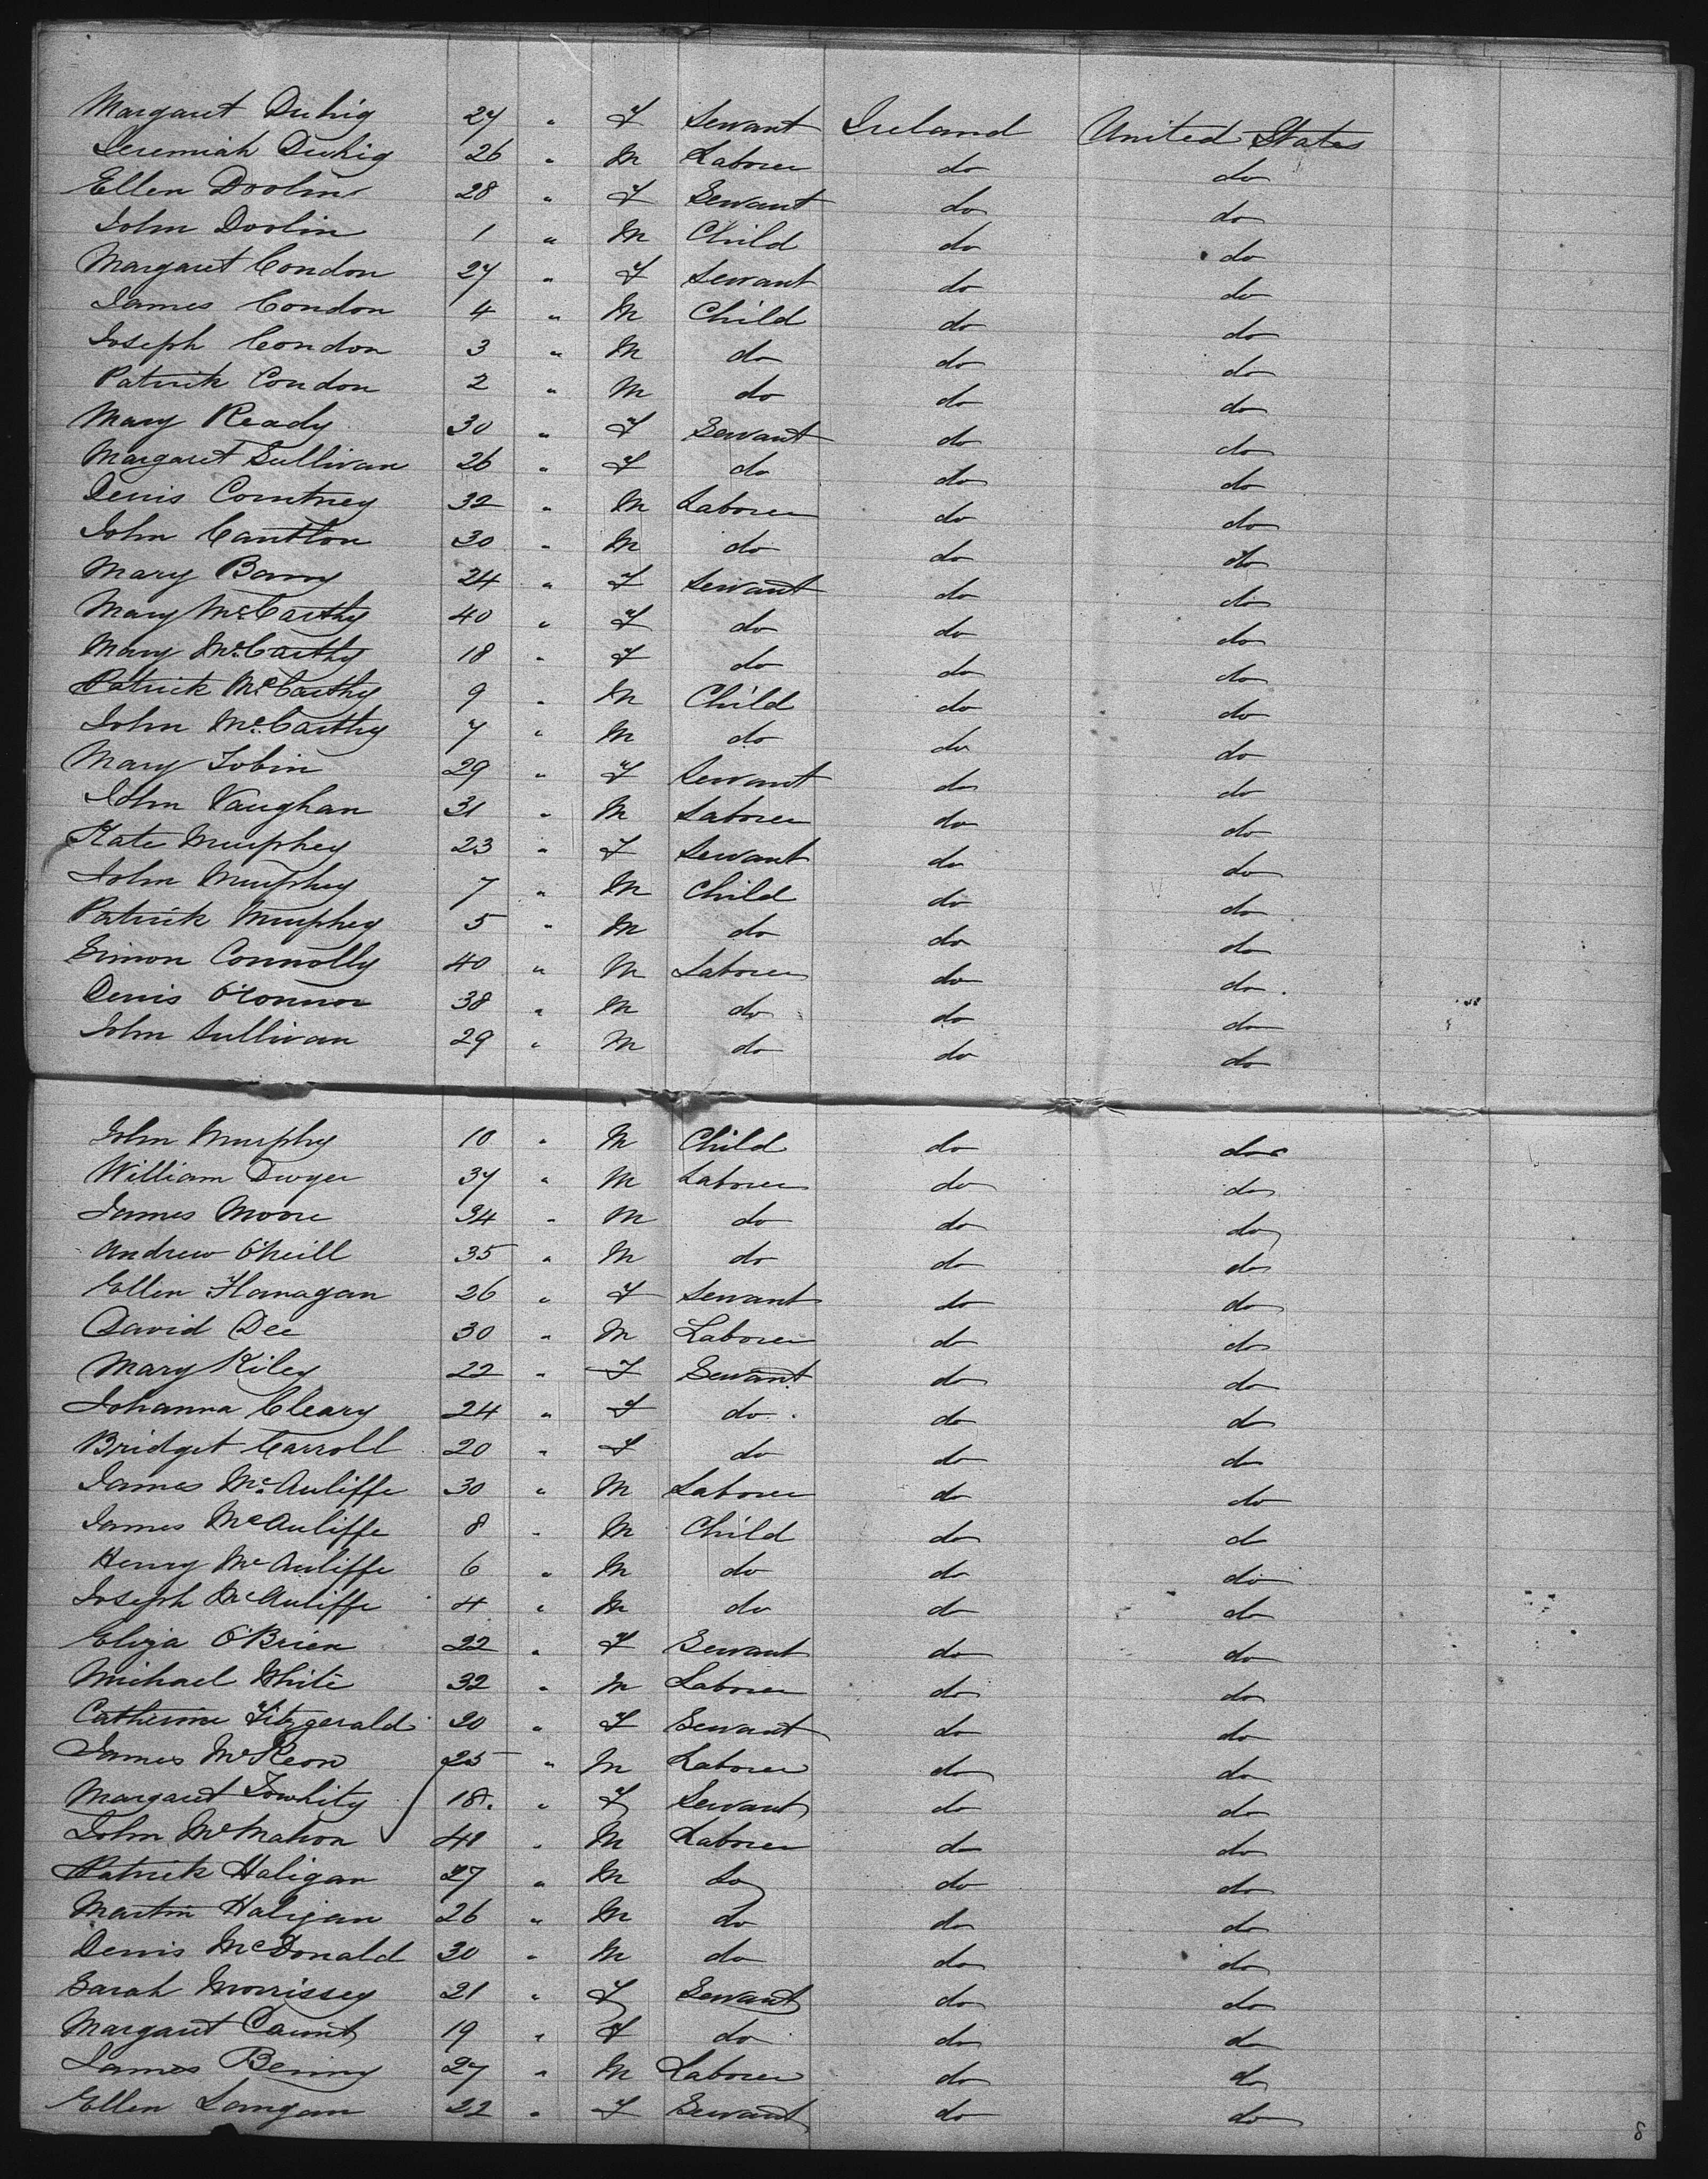 Margaret Duhig 27 " F Servant Ireland United States
Jeremiah Duhig 26 " M Laborer do do
Ellen Doolin 28 " F Servant do do
John Doolin 1 " M Child do do
Margaret Condon 27 " F Servant do do
James Condon 4 " M Child do do
Joseph Condon 3 " M do do do
Patrick Condon 2 " M do do do
Mary Ready 30 " F Servant do do
Margaret Sullivan 26 " F do do do
Denis Courtney 32 " M Laborer do do
John Cantlon 30 " M do do do
Mary Barry 24 " F Servant do do
Mary McCarthy 40 " F do do do
Mary McCarthy 18 " F do do do
Patrick McCarthy 9 " M Child do do
John McCarthy 7 " M do do do
Mary Tobin 29 " F Servant do do
John Vaughan 31 " M Laborer do do
Kate Murphey 23 " F Servant do do
John Murphey 7 " M Child do do
Patrick Murphey 5 " M do do do
Simon Connolly 40 " M Laborer do do
Denis O'Connor 38 " M do do do
John Sullivan 29 " M do do do
John Murphy 10 " M Child do do
William Dwyer 37 " M Laborer do do
James Moore 34 " M do do do
Andrew O'Neill 35 " M do do do
Ellen Flanagan 26 " F Servant do do
David Dee 30 " M Laborer do do
Mary Kiley 22 " F Servant do do
Johanna Cleary 24 " F do do do
Bridget Carroll 20 " F do do do
James McAuliffe 30 " M Laborer do do
James McAuliffe 8 " M Child do do
Henry McAuliffe 6 " M do do do
Joseph McAuliffe 4 " M do do do
Eliza O'Brien 22 " F Servant do do
Michael White 32 " M Laborer do do
Catherine Fitzgerald 20 " F Servant do do
James McKeon 25 " M Laborer do do
Margaret 18 " F Servant do do
John McMahon " M Laborer do do
Patrick Haligan 27 " M do do do
Martin Haligan 26 " M do do do
Denis McDonald 30 " M do do do
Sarah Morrissey 21 " F Servant do do
Margaret 19 " F do do do
James 27 " M Laborer do do
Ellen Langan 22 " F Servant do do
8